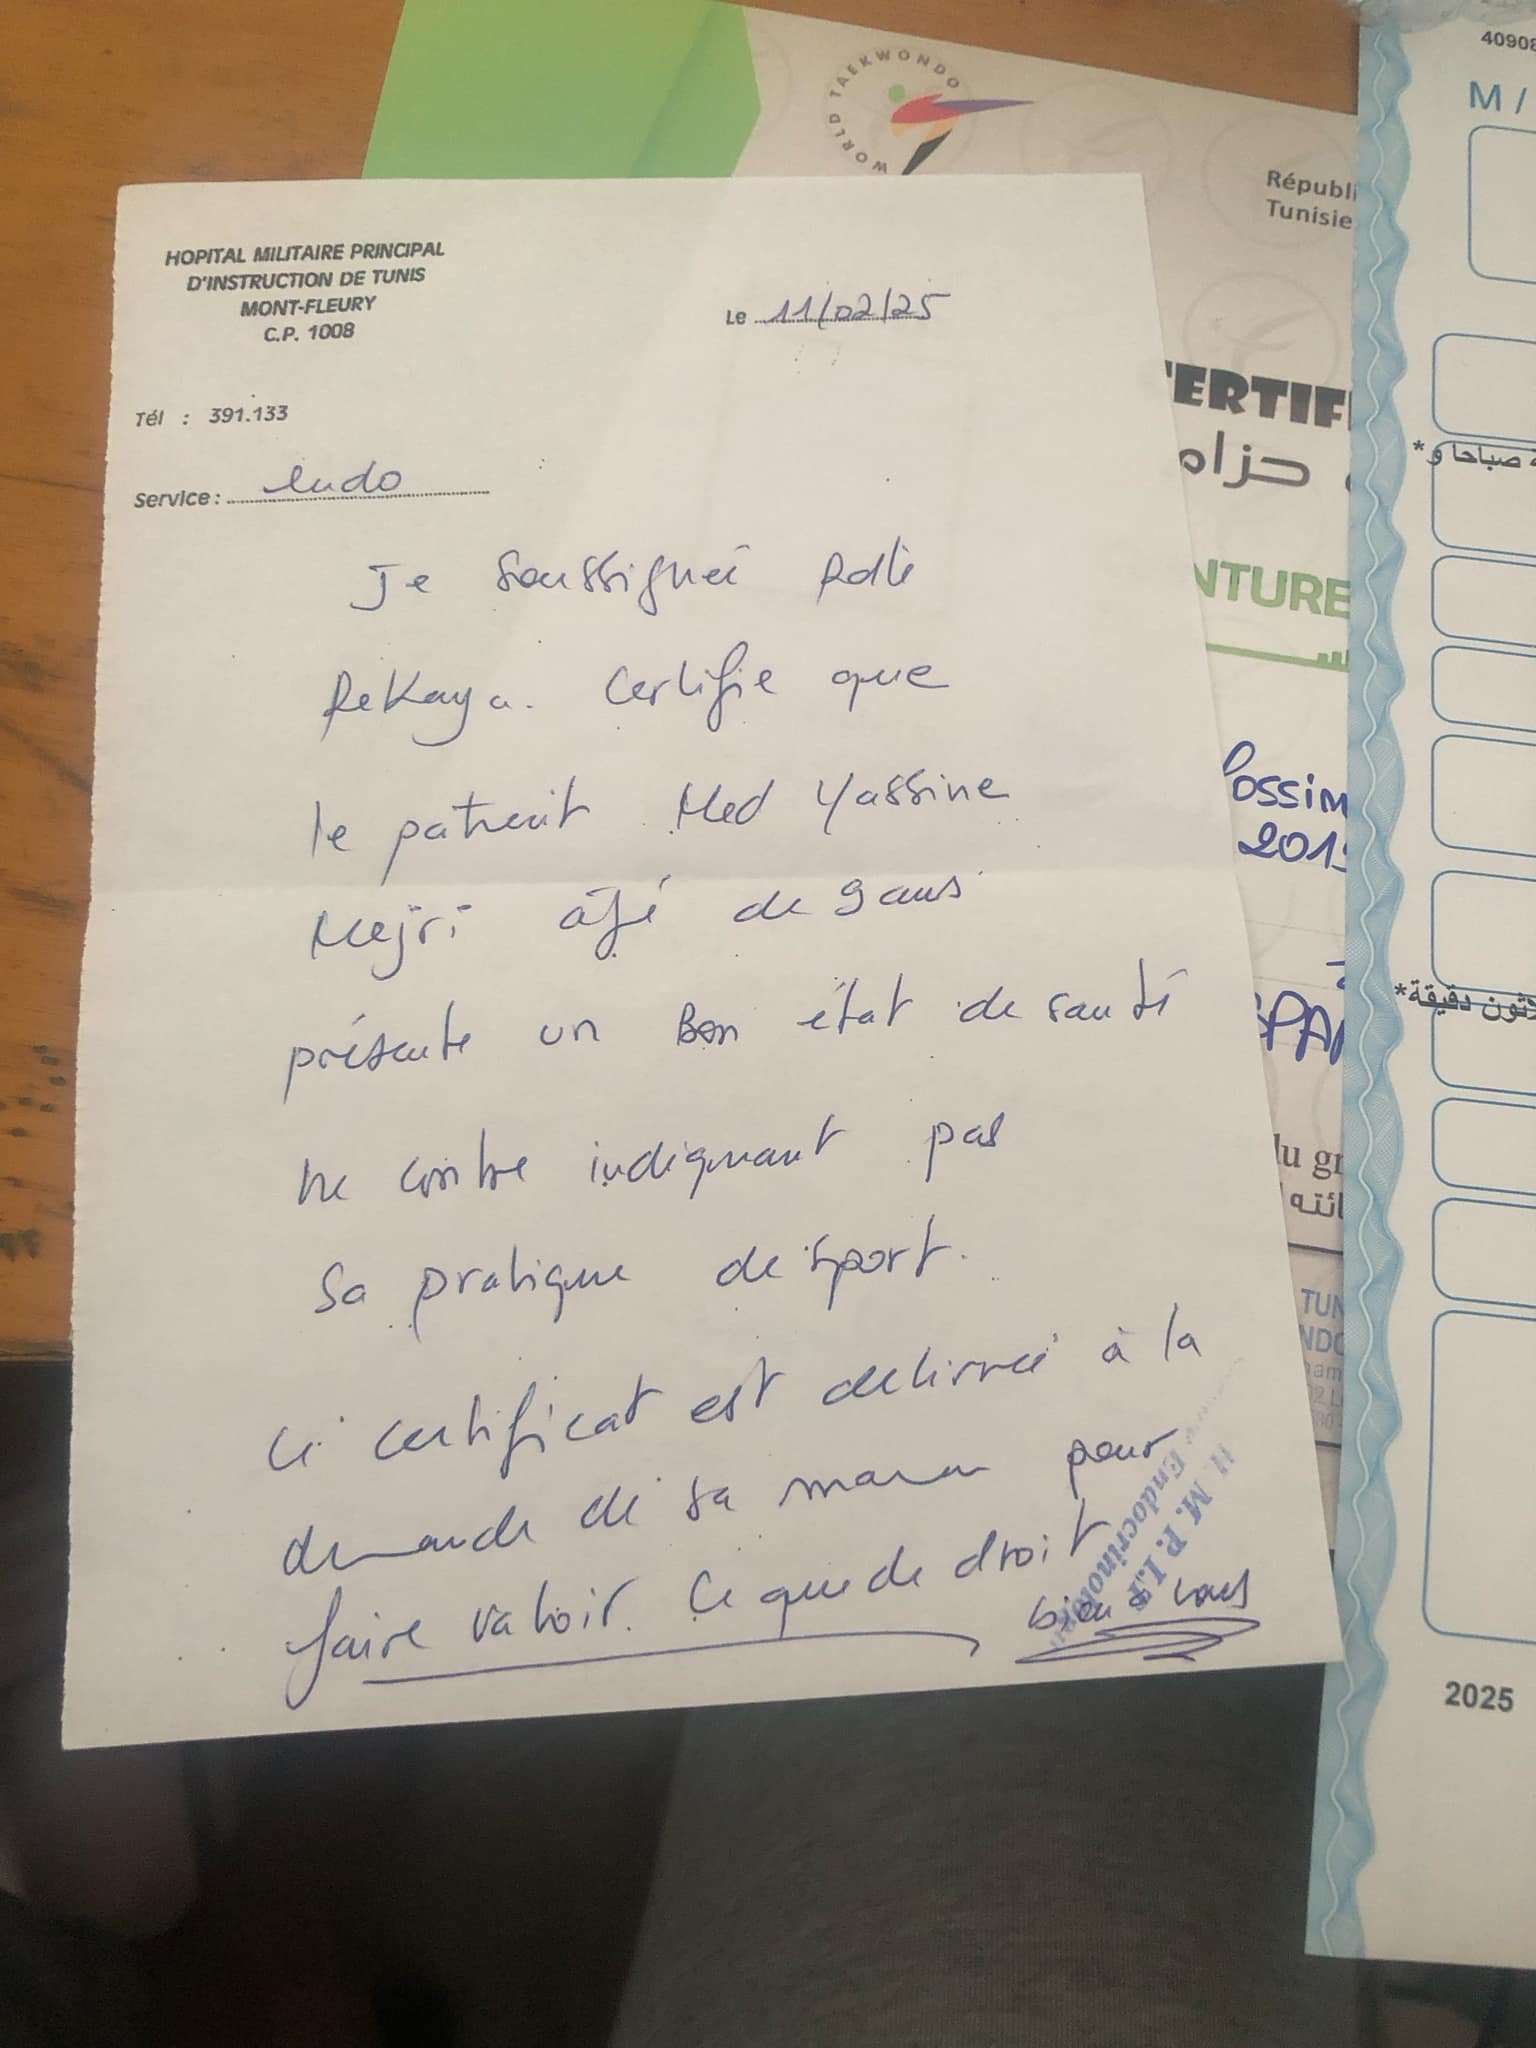 HOPITAL MILITAIRE PRINCIPAL
D'INSTRUCTION DE TUNIS
MONT-FLEURY
C.P. 1008
Le 11/02/25
Tél : 391.133
Service : endo
Je soussigneé
Rekaya. Certifie que
le patient Med Yassine
Mejri âgé de 9 ans
présente un Bon état de santé
ne contre indiquant pas
sa pratique de sport.
Ce certificat est delivreé à la
demande de sa maman pour
faire valoir. Ce que de droit
bien à vous
H. M. P. I. T
Endocrinolo
WORLD TAEKWONDO
Républi
Tunisie
ERTIF
حزام
NTURE
Possim
201
SPA
du gr
ائته
TUN
NDO
4090
M /
صباحا و*
دقيقة*
2025